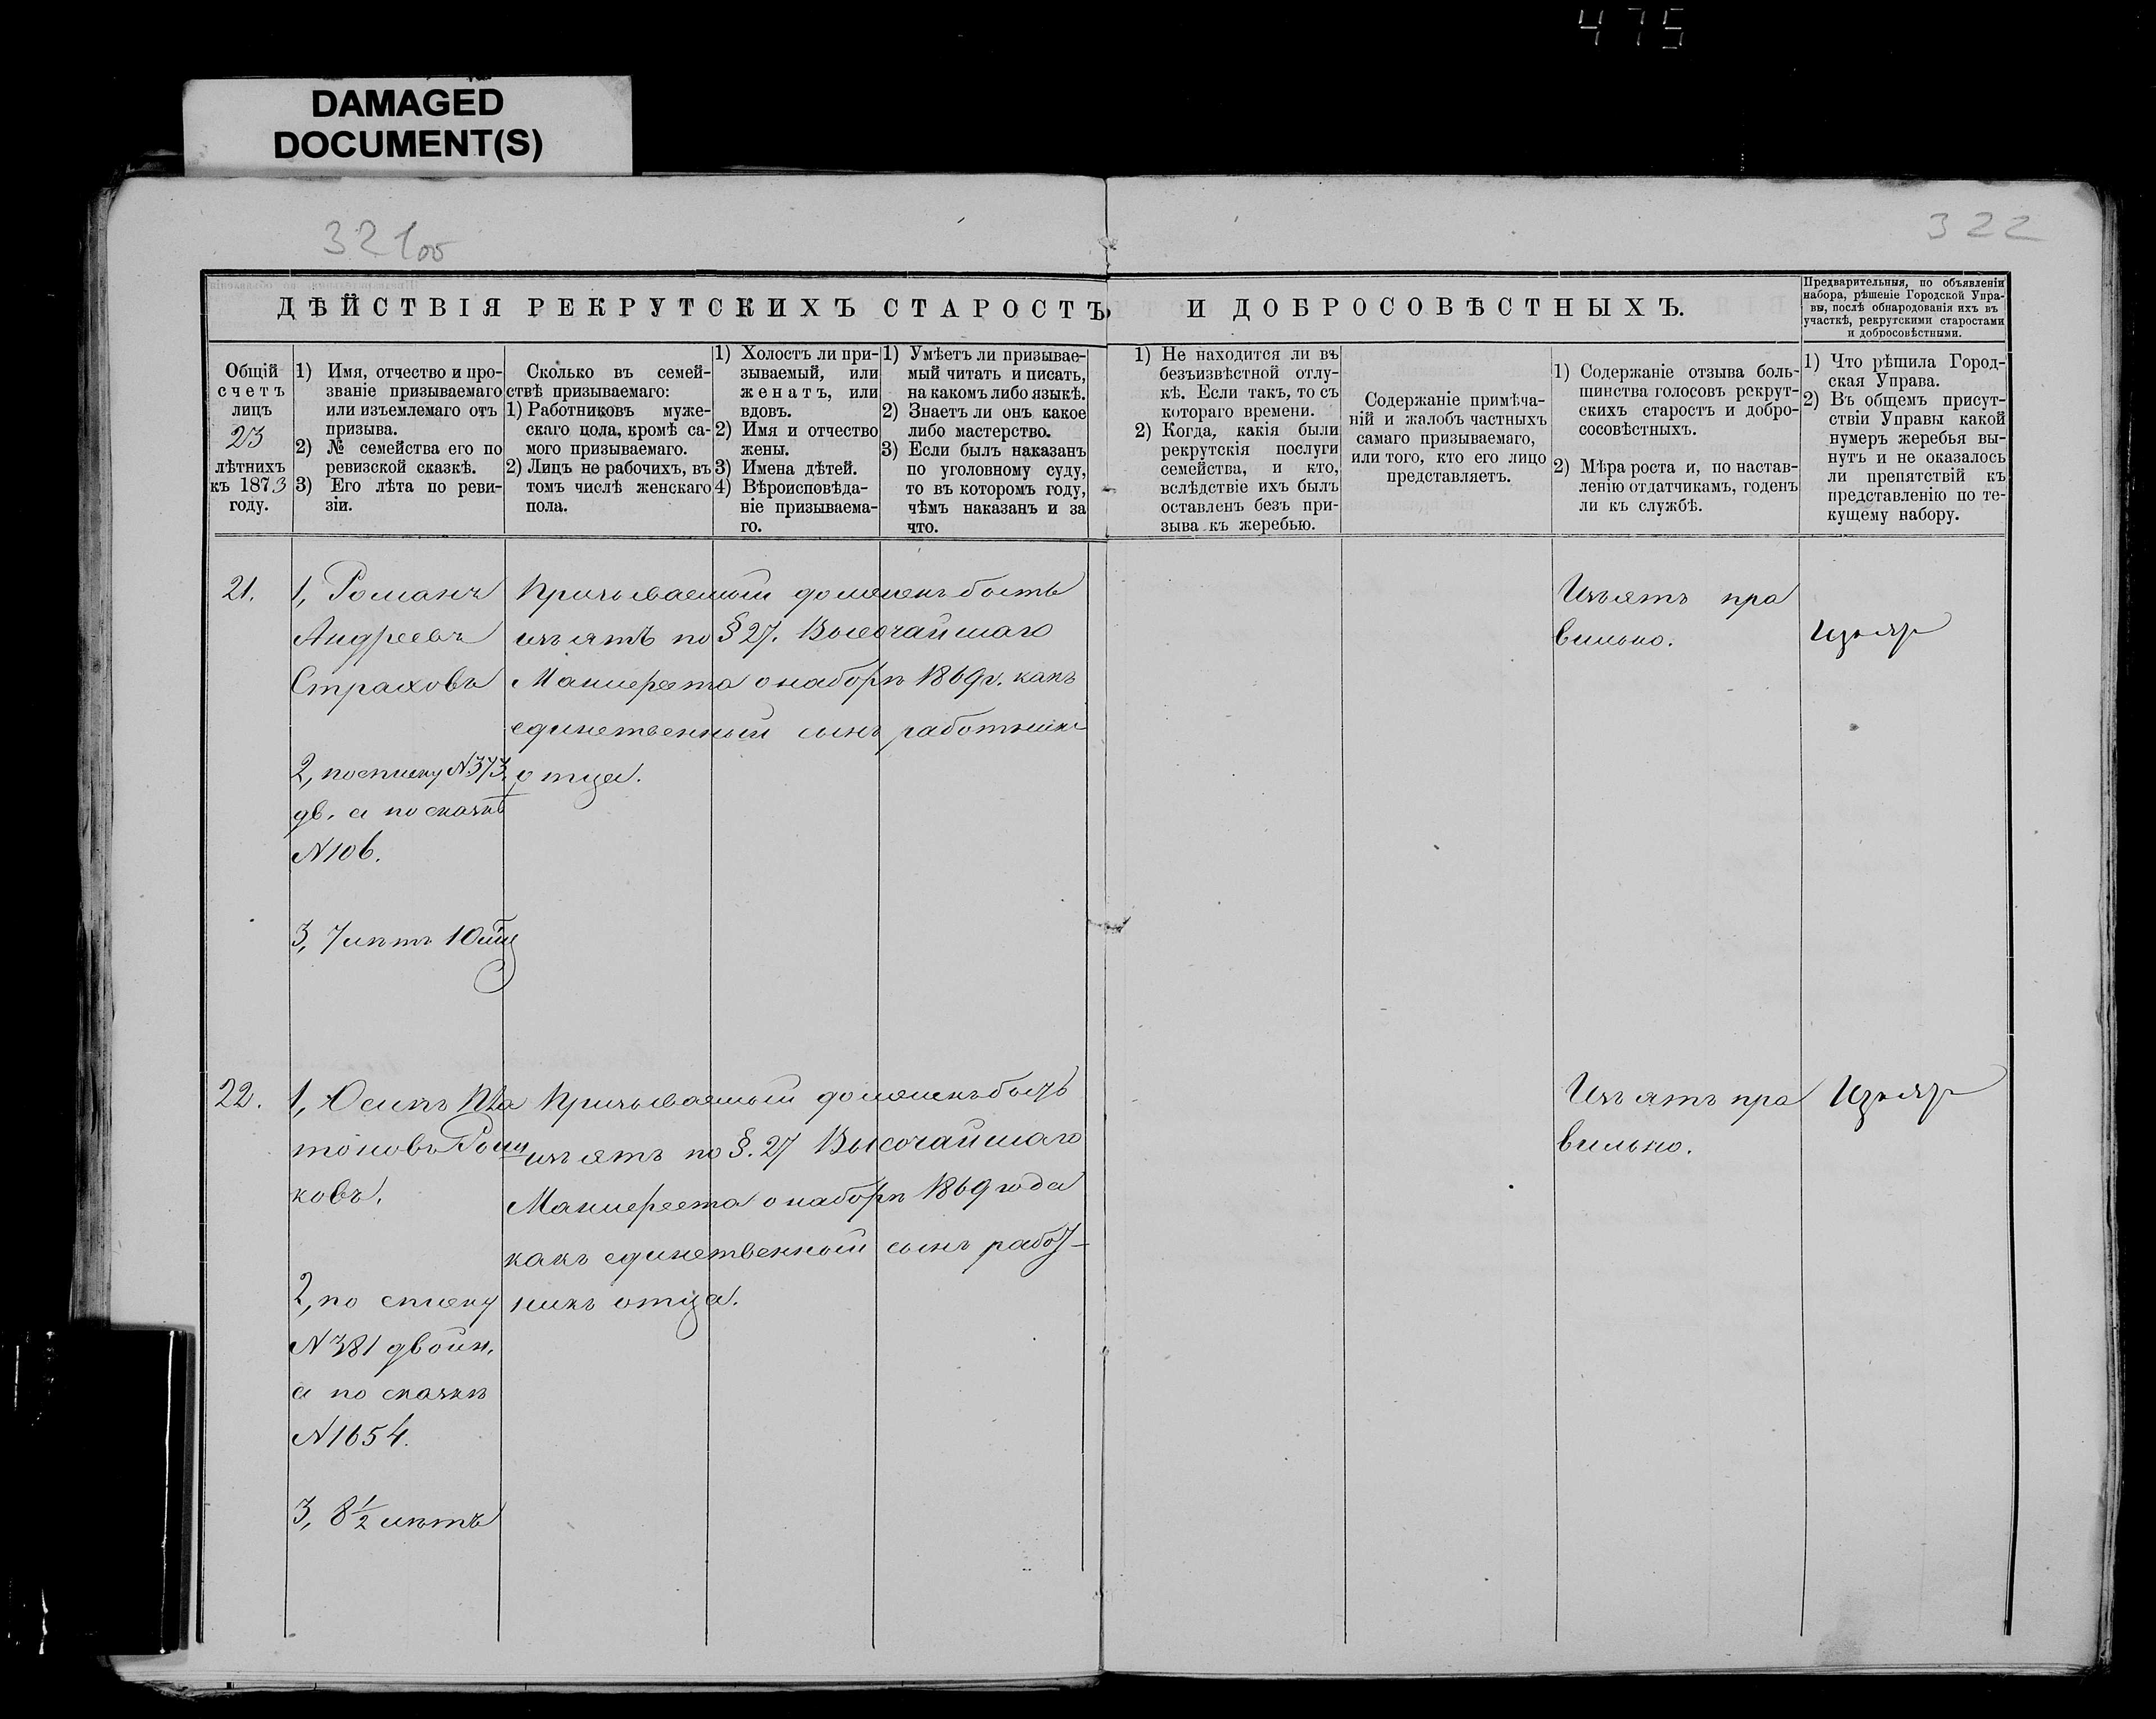 475
DAMAGED
DOCUMENT(S)
321об
322
ДѢЙСТВІЯ РЕКРУТСКИХЪ СТАРОСТЪ И ДОБРОСОВѢСТНЫХЪ.
Предварительныя, по объявленіи
набора, рѣшеніе Городской Упра-
вы, послѣ обнародованія ихъ въ
участкѣ, рекрутскими старостами
и добросовѣстными.
Общій
счетъ
лицъ
23
лѣтнихъ
къ 1873
году.
1) Имя, отчество и про-
званіе призываемаго
или изъемлемаго отъ
призыва.
2) № семейства его по
ревизской сказкѣ.
3) Его лѣта по реви-
зіи.
Сколько въ семей-
ствѣ призываемаго:
1) Работниковъ муже-
скаго пола, кромѣ са-
мого призываемаго.
2) Лицъ не рабочихъ, въ
томъ числѣ женскаго
пола.
1) Холостъ ли при-
зываемый, или
женатъ, или
вдовъ.
2) Имя и отчество
жены.
3) Имена дѣтей.
4) Вѣроисповѣда-
ніе призываема-
го.
1) Умѣетъ ли призывае-
мый читать и писать,
на какомъ либо языкѣ.
2) Знаетъ ли онъ какое
либо мастерство.
3) Если былъ наказанъ
по уголовному суду,
то въ которомъ году,
чѣмъ наказанъ и за
что.
1) Не находится ли въ
безъизвѣстной отлу-
кѣ. Если такъ, то съ
котораго времени.
2) Когда, какія были
рекрутскія послуги
семейства, и кто,
вслѣдствіе ихъ былъ
оставленъ безъ при-
зыва къ жеребью.
Содержаніе примѣча-
ній и жалобъ частныхъ
самаго призываемаго,
или того, кто его лицо
представляетъ.
1) Содержаніе отзыва боль-
шинства голосовъ рекрут-
скихъ старостъ и добро-
сосовѣстныхъ.
2) Мѣра роста и, по настав-
ленію отдатчикамъ, годенъ
ли къ службѣ.
1) Что рѣшила Город-
ская Управа.
2) Въ общемъ присут-
ствіи Управы какой
нумеръ жеребья вы-
нутъ и не оказалось
ли препятствій къ
представленію по те-
кущему набору.
21.
1, Романъ
Андреевъ
Страховъ
2, по списку N373.
дв. а по сказкѣ
N106.
3, 7 лѣтъ 10 м
Призываемый долженъ быть
изъятъ по §27. Высочайшаго
Манифеста о наборѣ 1869 г. какъ
единственный сынъ работникъ
отца.
Изъятъ пра
вильно.
Изъят
22.
1, Осипъ Пла
тоновъ
ковъ.
2, по списку
N381 двойн.
а по сказкѣ
N1654.
3, 8 1/2 лѣтъ
Призываемый долженъ быть
изъятъ по §. 27 Высочайшаго
Манифеста о наборѣ 1869 года
какъ единственный сынъ работ-
никъ отца.
Изъятъ пра
вильно.
Изъят